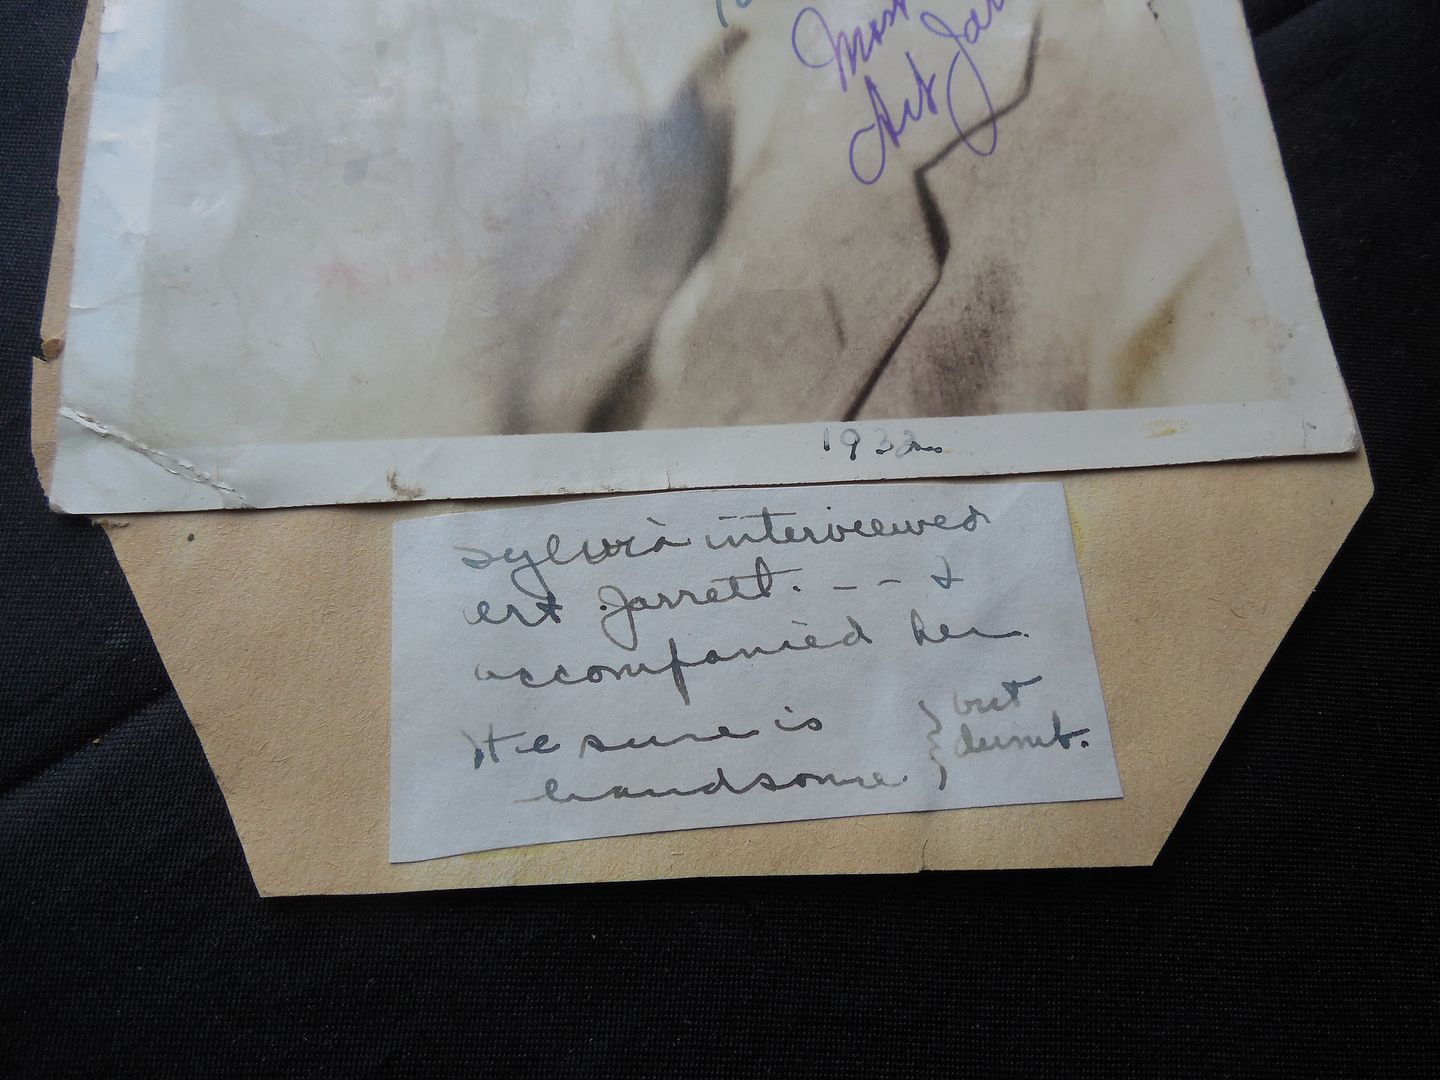 Art Jar
1932
Sylvia interviewed
Art Jarrett. - - - &
accompanied her.
He sure is
handsome. } but
dumb.